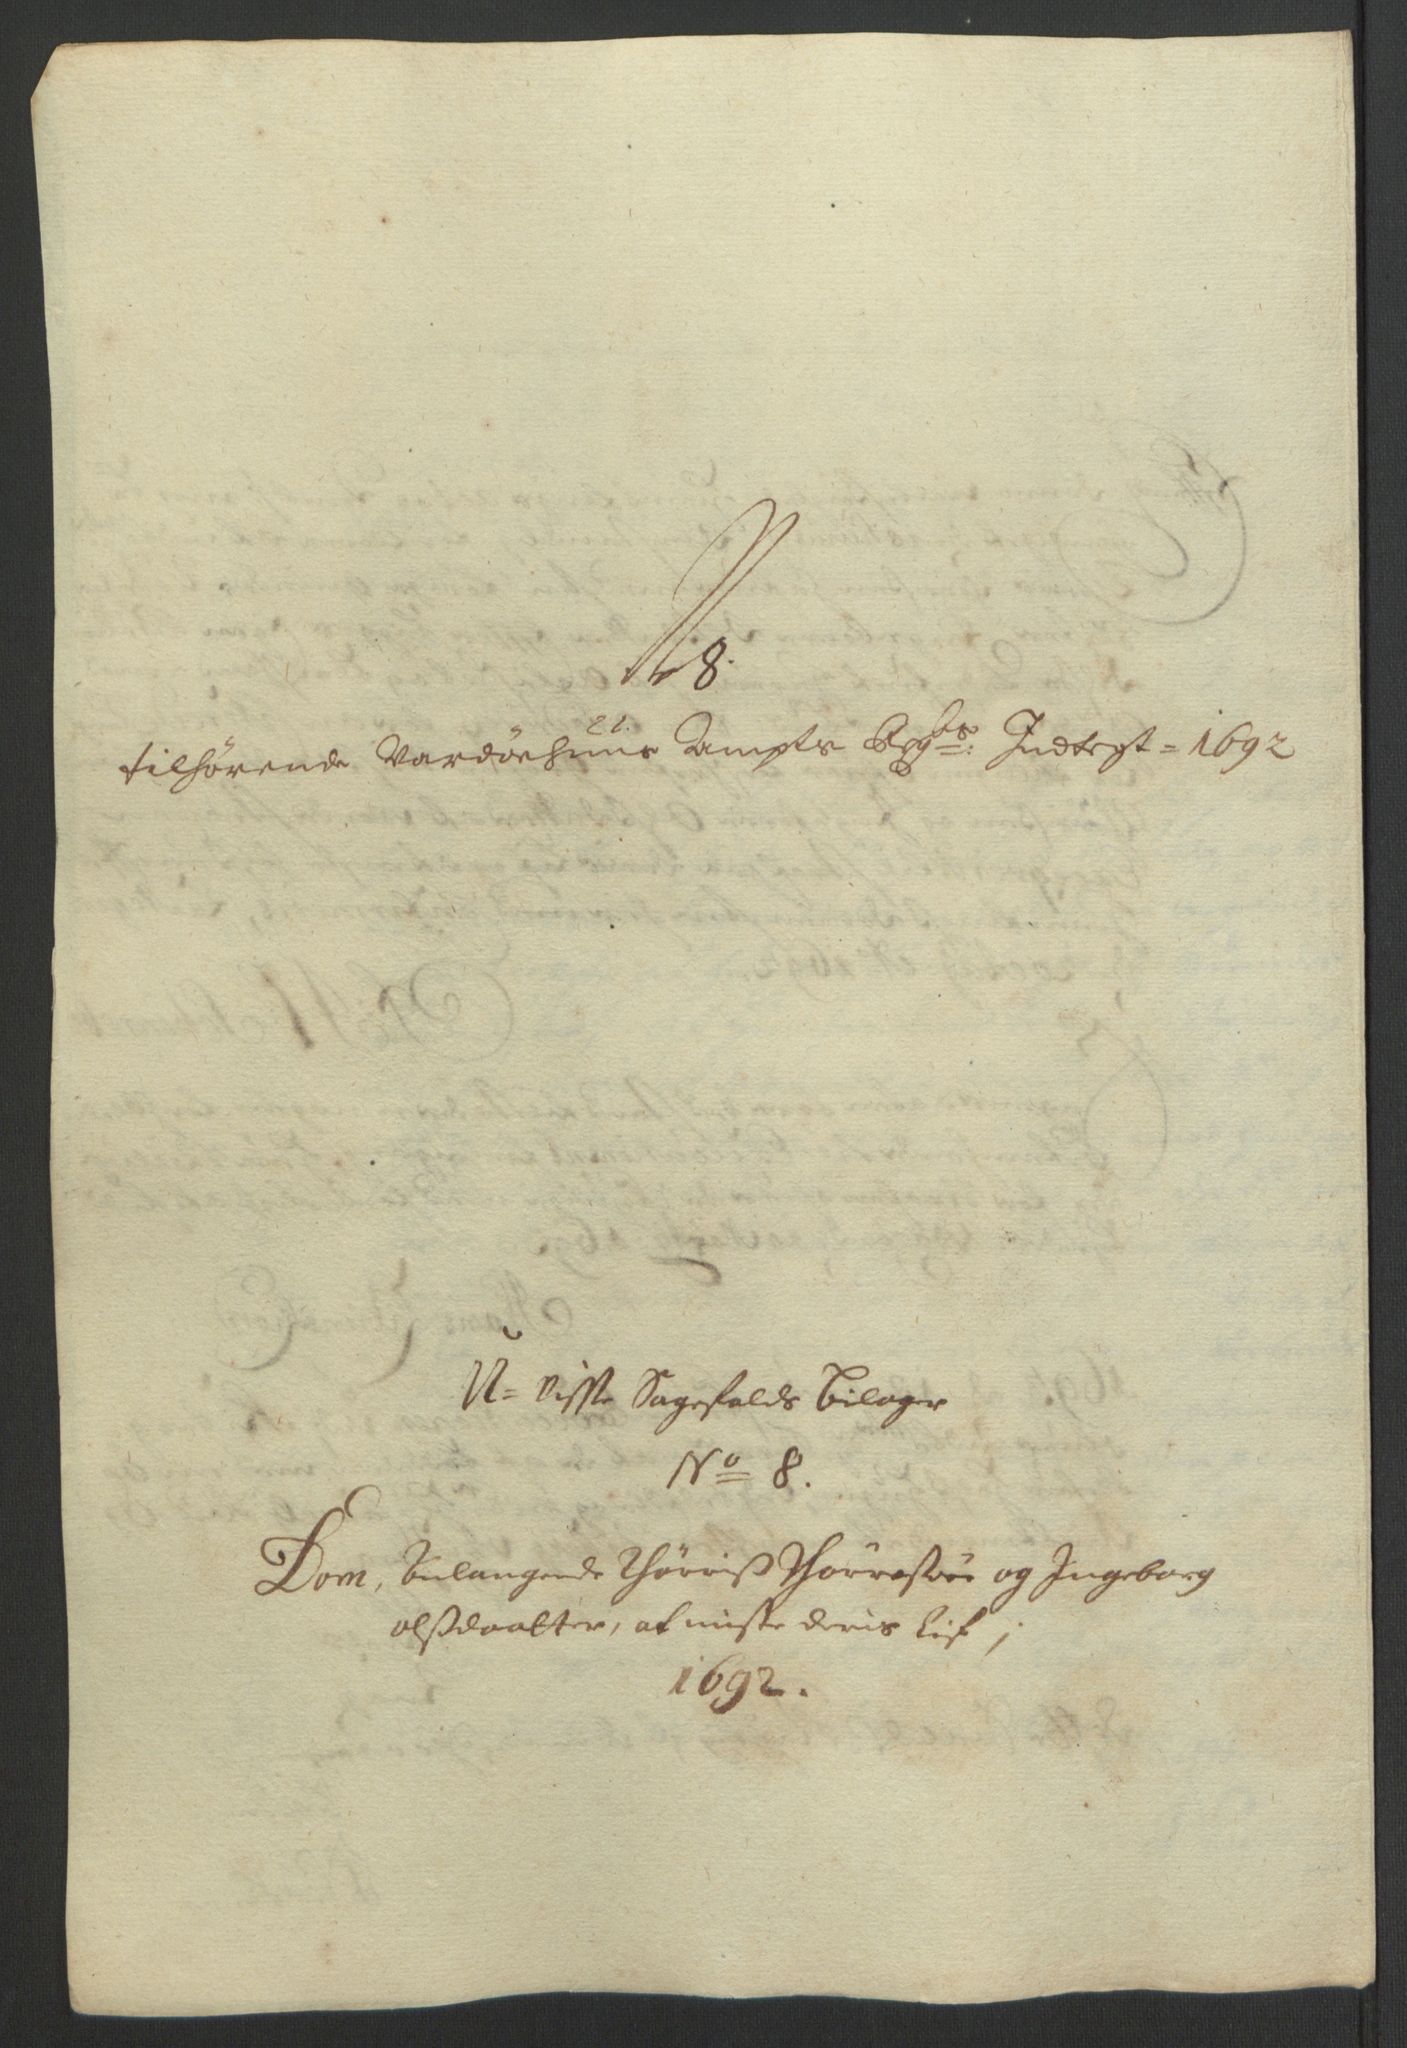 N 8.
21.
tilhörende Wardöehuus Ampts Regbs: Indtegt = 1692
U= visse Sagefalds Bilager
No 8.
Dom, Anlangende Thörriß Thörresön og Ingeborg
olßdaatter, at miste deris Lif;
1692.